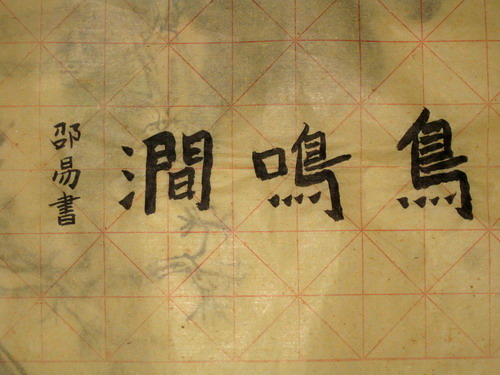 鳥鳴澗
邵易書